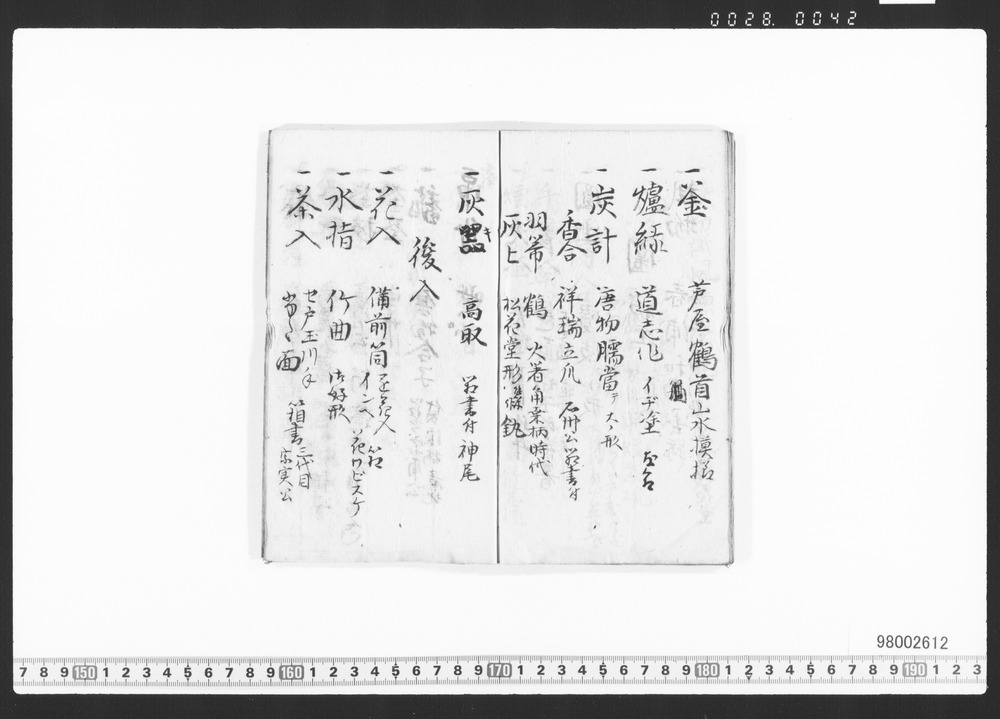 0028. 0042
一 釜 芦屋鶴首山水模様
一 爐縁 道志作 イヂ塗
一 炭計 唐物臑當テ 大々形
香合 祥瑞立瓜 石州公箱書付
羽箒 鶴 火箸角桑柄時代
灰上 松花堂形
一 灰器 キ 高取 箱書付神尾
後入
一 花入 備前筒 インベ 花ワビスケ
一 水指 竹曲 御好形
一 茶入 セ戸玉川手 箱書三代目宗実公
面
98002612
7 8 9 150 1 2 3 4 5 6 7 8 9 160 1 2 3 4 5 6 7 8 9 170 1 2 3 4 5 6 7 8 9 180 1 2 3 4 5 6 7 8 9 190 1 2 3